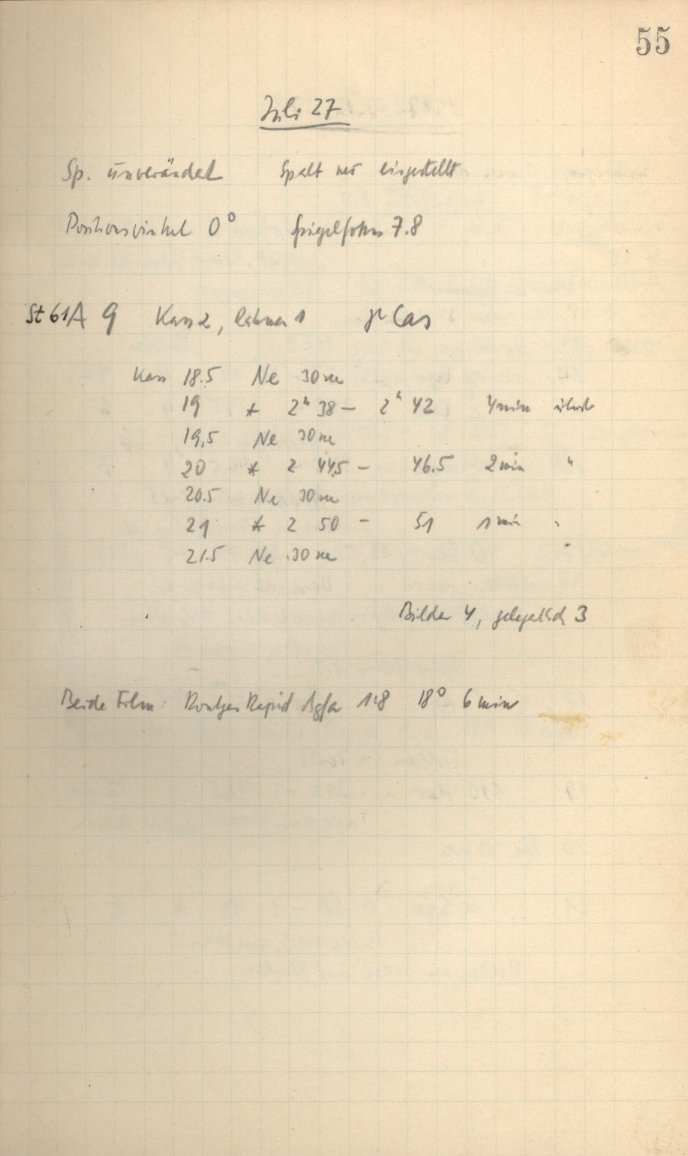 55
Juli 27
Sp. unverändert Spalt neu eingestellt
Positionswinkel 0° Spiegelfokus 7.8
St 61A 9 Kass 2, Rahmen 1 γ Cas
Kass 18.5 Ne 30 sec
19 * 2h 38 – 2h 42 4 min
19,5 Ne 30 sec
20 * 2 44.5 – 46.5 2 min "
20.5 Ne 30 sec
21 * 2 50 – 51 1 min "
21.5 Ne 30 sec
Bilder 4, gelegentlich 3
Beide Film: Röntgen Rapid Agfa 1:8 18° 6 min